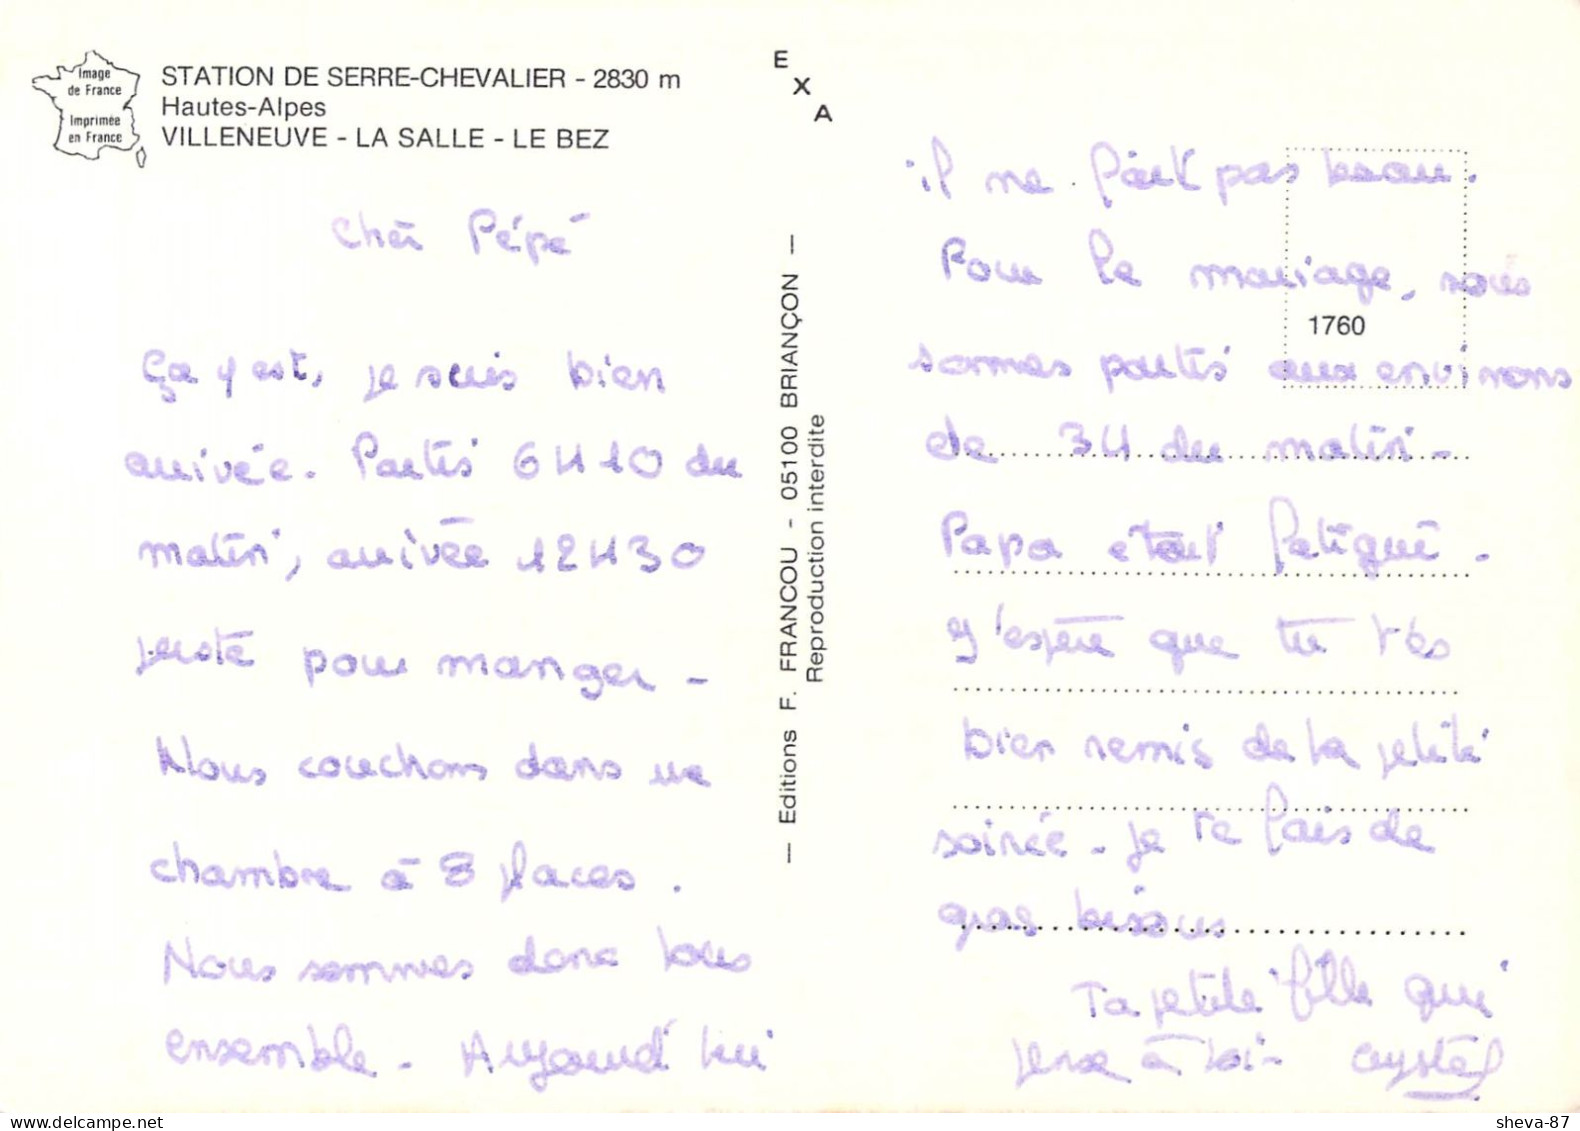 Image
de France
Imprimée
en France
STATION DE SERRE-CHEVALIER - 2830 m
Hautes-Alpes
VILLENEUVE - LA SALLE - LE BEZ
Cher Pépé
Ça y est, je suis bien
arrivée. Partis 6H10 du
matin, arrivée 12H30
juste pour manger -
Nous couchons dans une
chambre à 8 places.
Nous sommes donc tous
ensemble. Aujourd'hui
EXA
— Editions F. FRANCOU - 05100 BRIANÇON —
Reproduction interdite
il ne fait pas beau.
Pour le mariage, nous
1760
sommes partis aux environs
de 3H du matin -
Papa etait fatigué.
J'espère que tu t'es
bien remis de la petite
soirée - je te fais de
gros bisous
Ta petite fille qui
pense à toi - Crystel
sheva-87